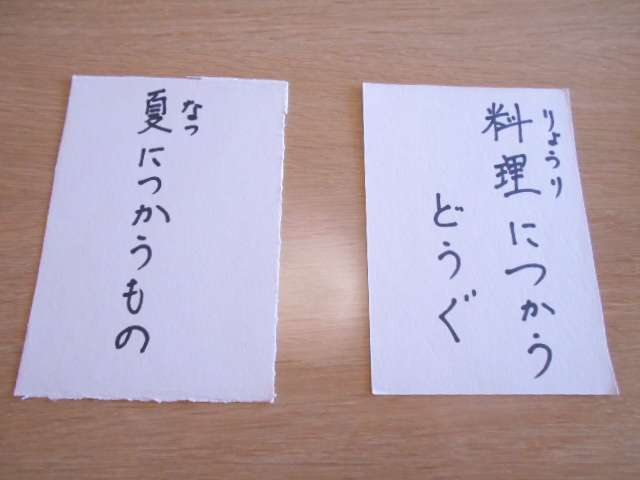 夏につかうもの
なつ
料理につかう
りょうり
どうぐ